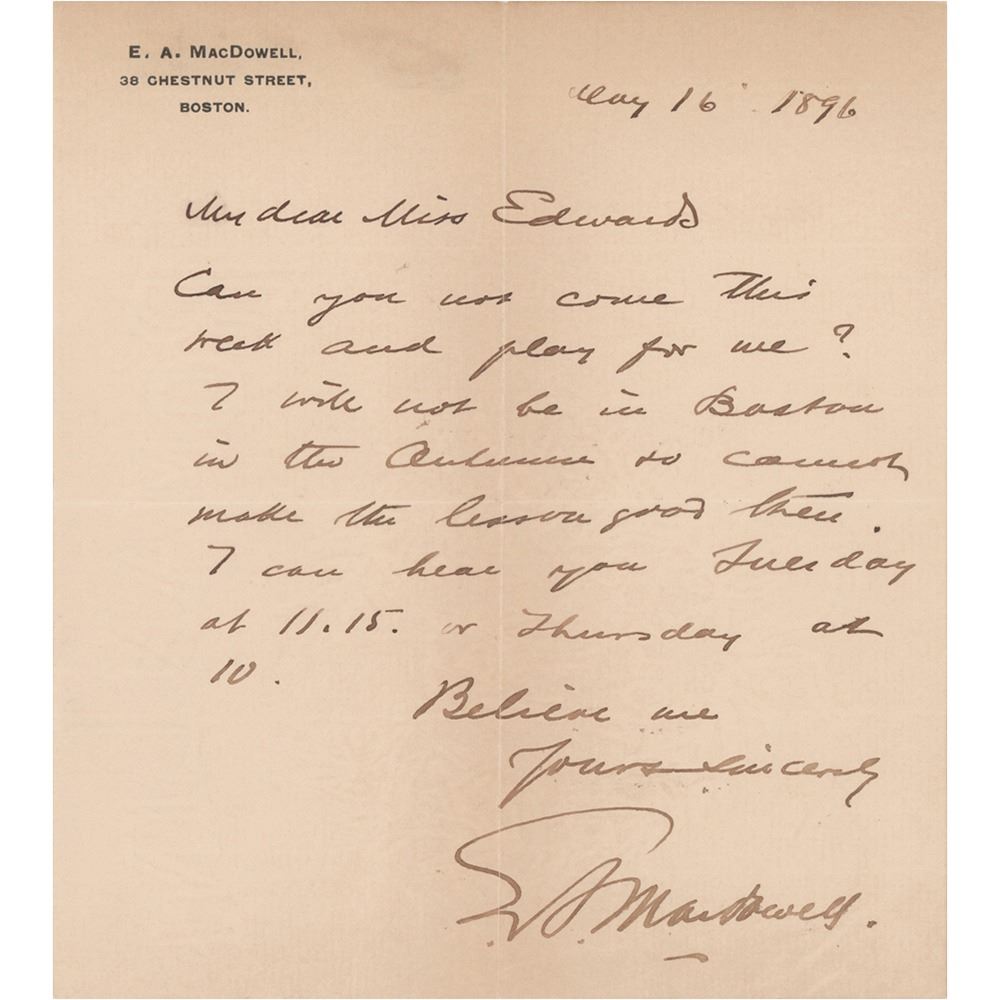 E. A. MACDOWELL,
38 CHESTNUT STREET,
BOSTON.
May 16 1896
My dear Miss Edwards
Can you not come this
week and play for me?
I will not be in Boston
in the Autumn so cannot
make the lesson good then.
I can hear you Tuesday
at 11.15. or Thursday at
10.
Believe me
Yours sincerely
E. A. MacDowell.